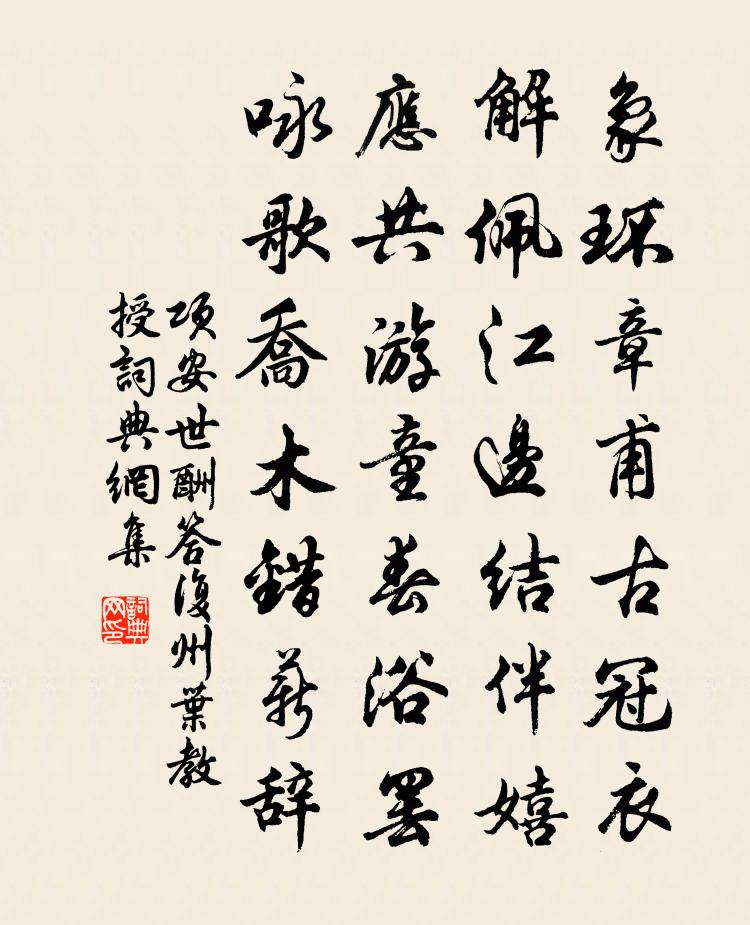 象环章甫古冠衣
解佩江邊结伴嬉
應共游童春浴罢
咏歌喬木錯薪辞
项安世酬答復州葉教
授詞典網集
詞典
网印